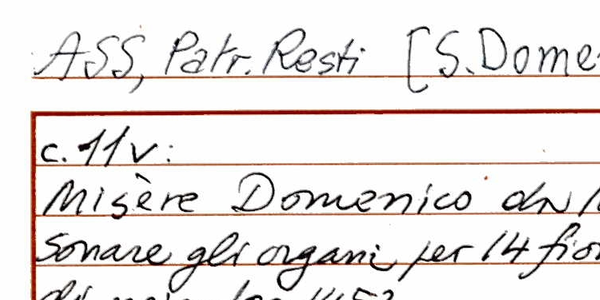 ASS, Patr. Resti [S. Dome
c. 11v:
Misère Domenico da
sonare gli organi per 14 fio